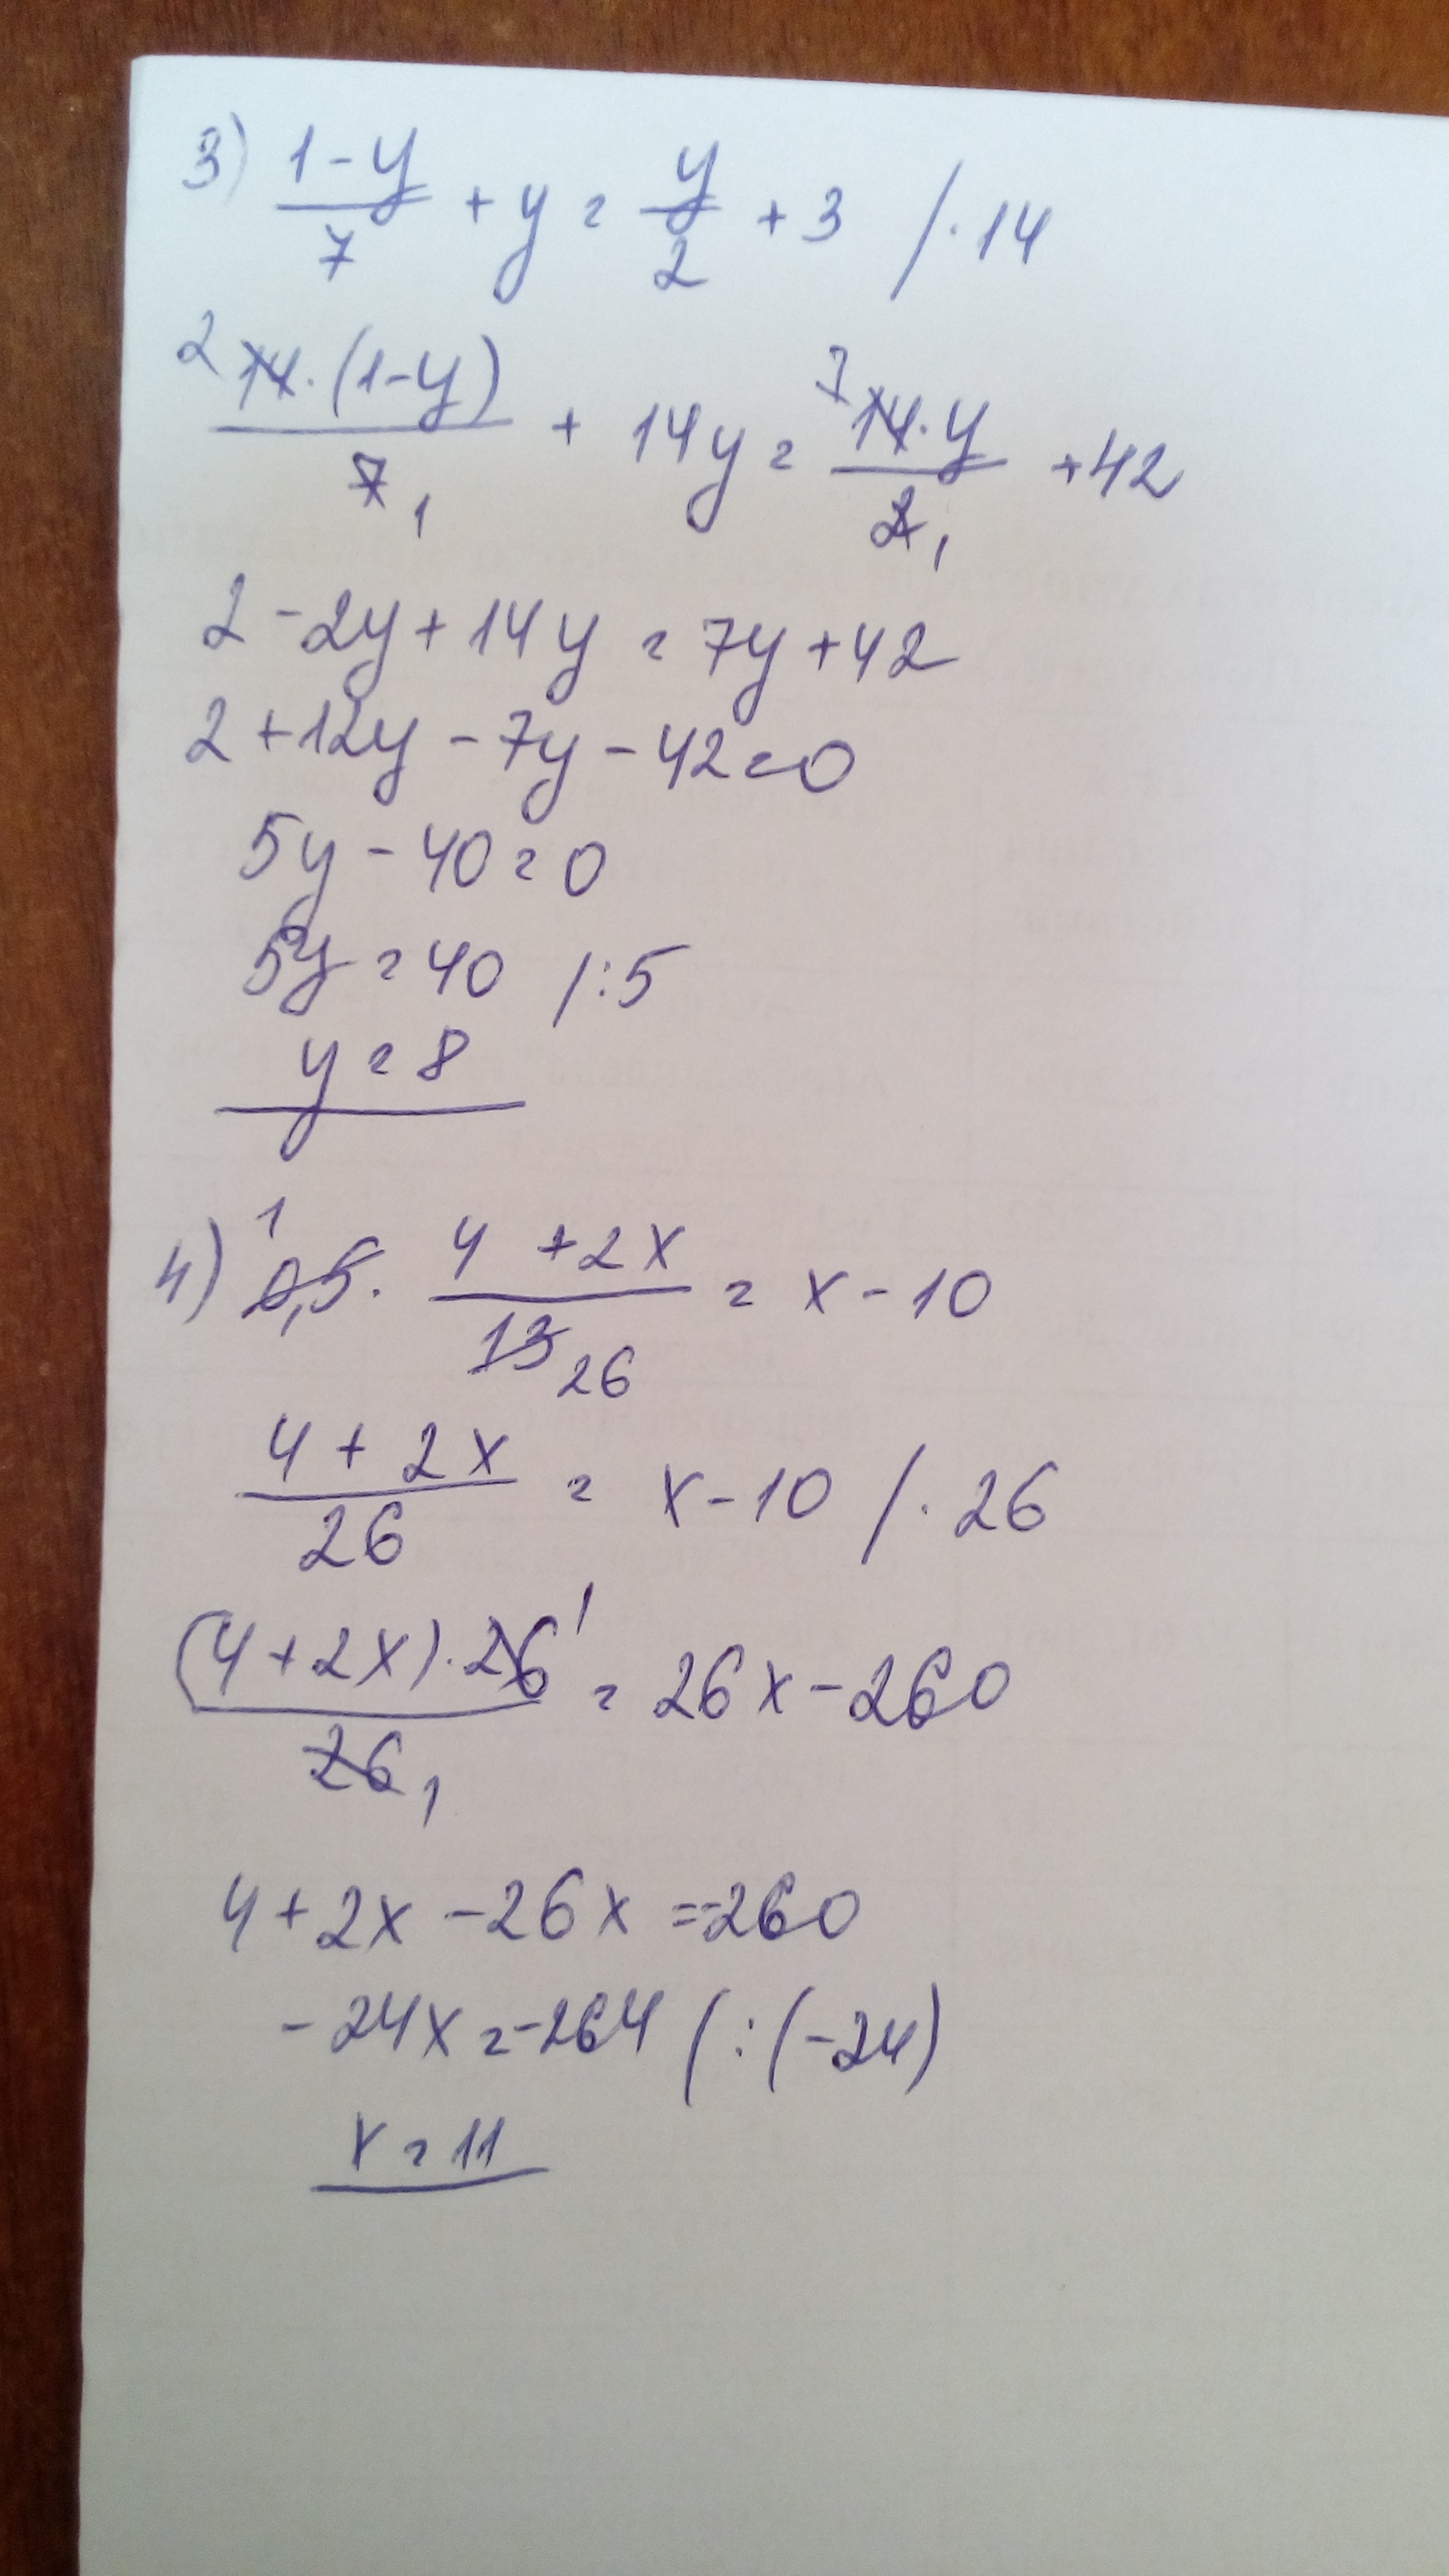 3) (1-y)/7 + y = y/2 + 3 / · 14
2 14·(1-y)/7 1 + 14y = 7 14·y/2 1 + 42
2 - 2y + 14y = 7y + 42
2 + 12y - 7y - 42 = 0
5y - 40 = 0
5y = 40 /:5
y = 8
4) 1 0,5 · (4 + 2x)/13 26 = x - 10
(4 + 2x)/26 = x - 10 / · 26
(4 + 2x) · 26 1/26 1 = 26x - 260
4 + 2x - 26x = -260
-24x = -264 (:(-24)
x = 11